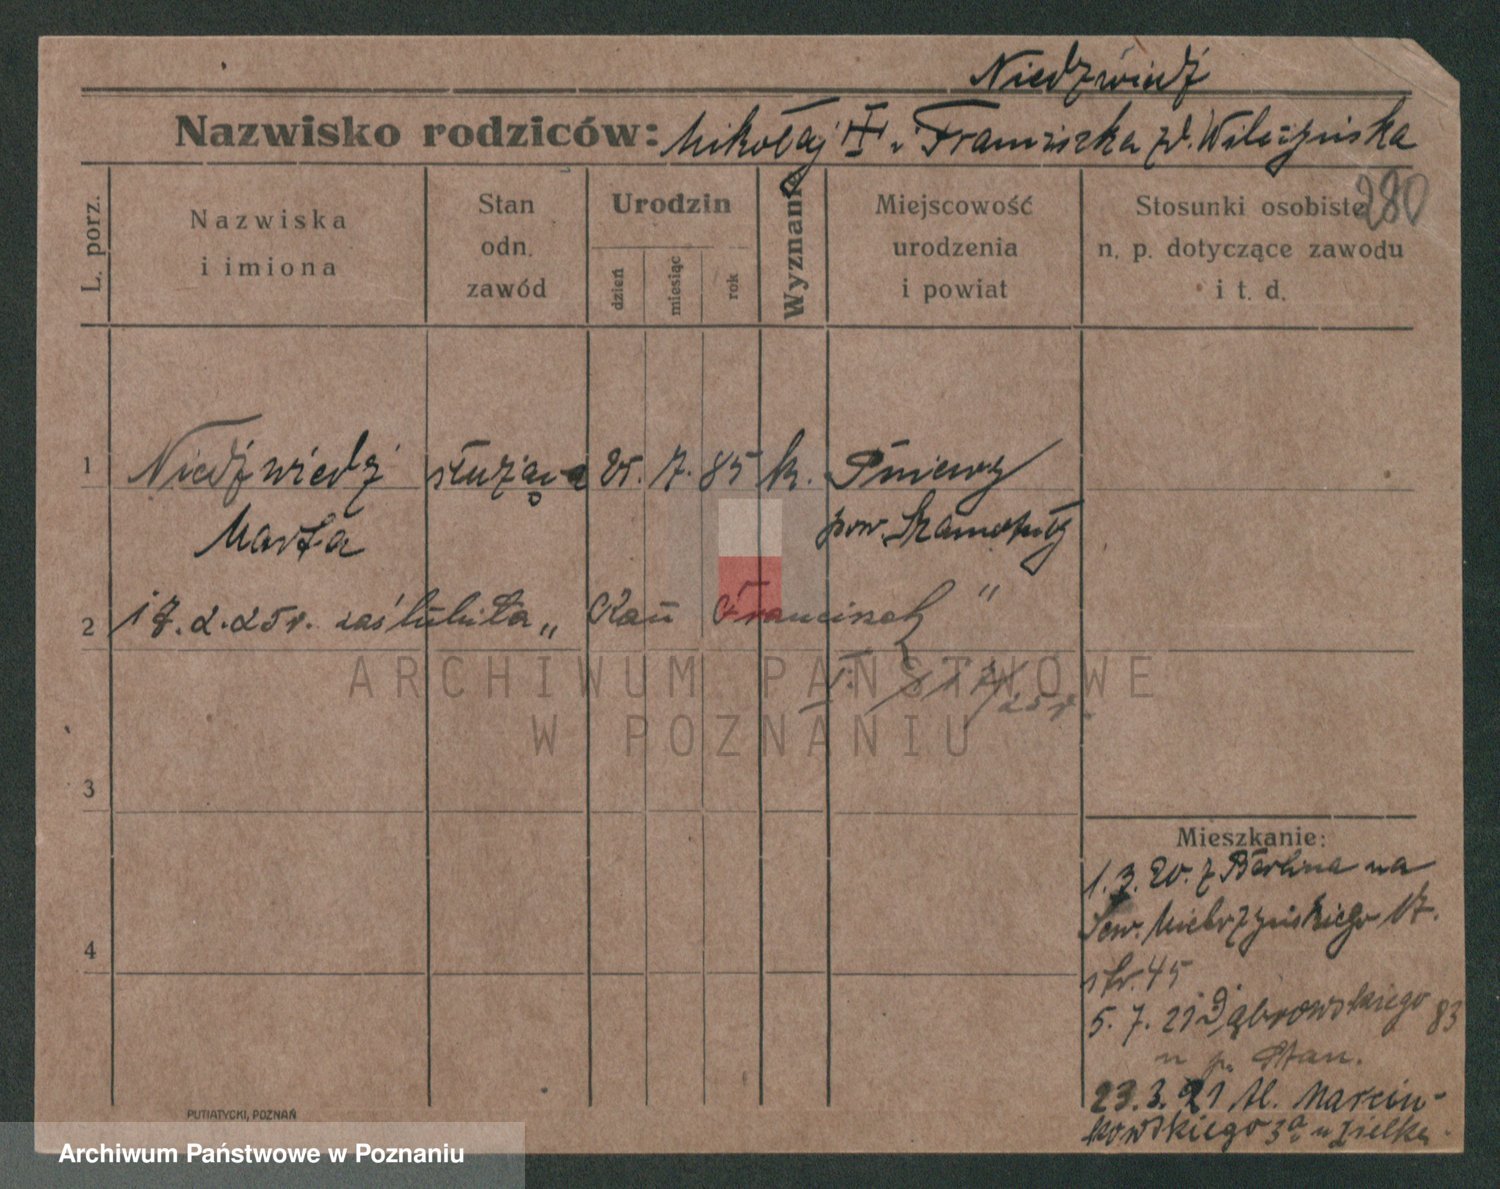 Niedźwiedź
Nazwisko rodziców: Mikołaj i Franciszka zd. Wilczyńska
280
L. porz.
Nazwiska i imiona
Stan odn. zawód
Urodzin
dzień
miesiąc
rok
Wyznanie
Miejscowość urodzenia i powiat
Stosunki osobiste n. p. dotyczące zawodu i t. d.
1 Niedźwiedź służąca 25. 7. 85 k. Pniewy
Marta pow. Szamotuły
2 17.2.25r. zaślubiła „ Kań Franciszek "
25r.
3
4
Mieszkanie:
1.3.20. z Berlina na
Sew. Mielżyńskiego 17.
str. 45
5. 7. 21 Dąbrowskiego 83
u p. Stan.
23.3.21 Al. Marcin-
kowskiego 3a u Zielke
PUTIATYCKI, POZNAŃ
ARCHIWUM PAŃSTWOWE
W POZNANIU
Archiwum Państwowe w Poznaniu